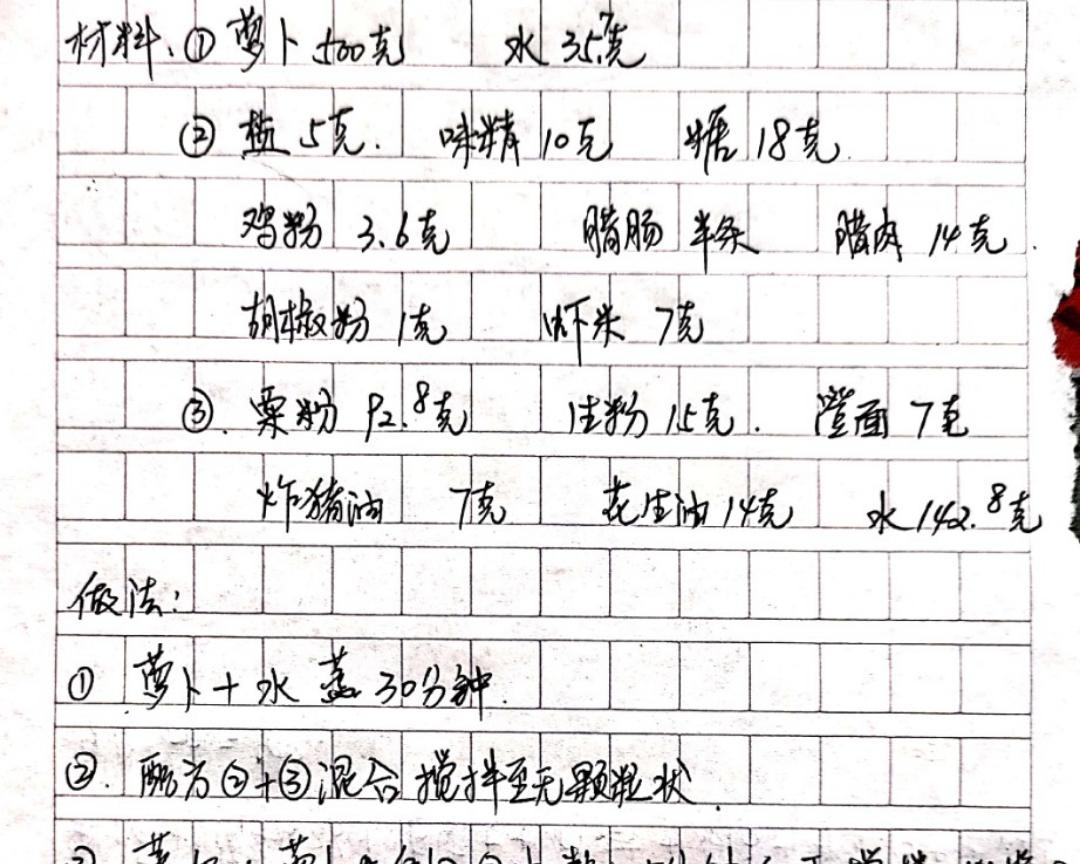 材料、① 萝卜 500克 水 35.7克
② 盐 5克. 味精 10克 糖 18克.
鸡粉 3.6克 腊肠 半条 腊肉 14克.
胡椒粉 1克 虾米 7克
③. 粟粉 92.8克 生粉 15克. 澄面 7克
炸猪油 7克 花生油 14克 水 142.8克
做法:
① 萝卜+水 蒸 30分钟.
②. 配方②+③混合 搅拌至无颗粒状.